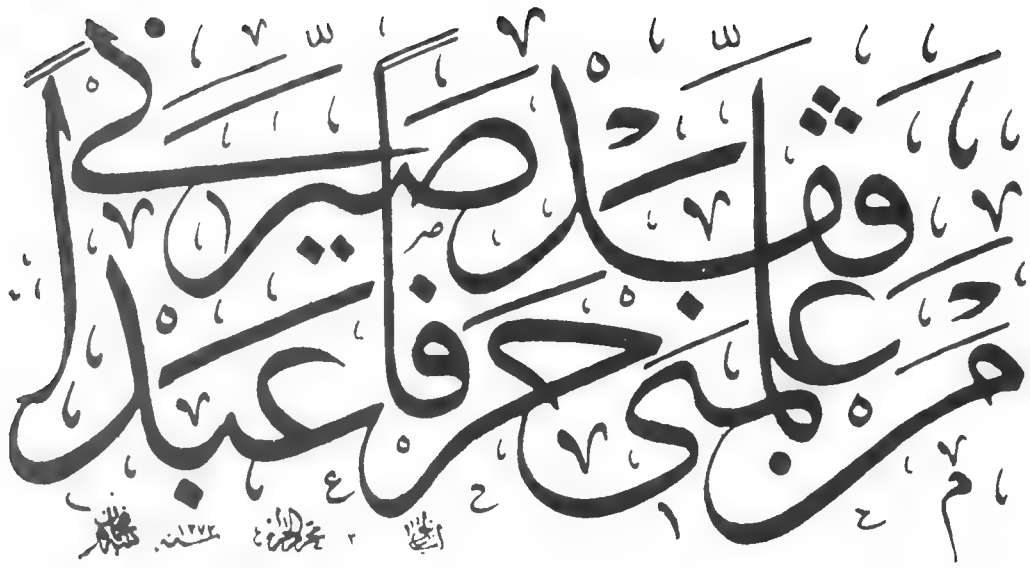 من علمني حرفا
فقد صيرني عبدا
١٢٧٣